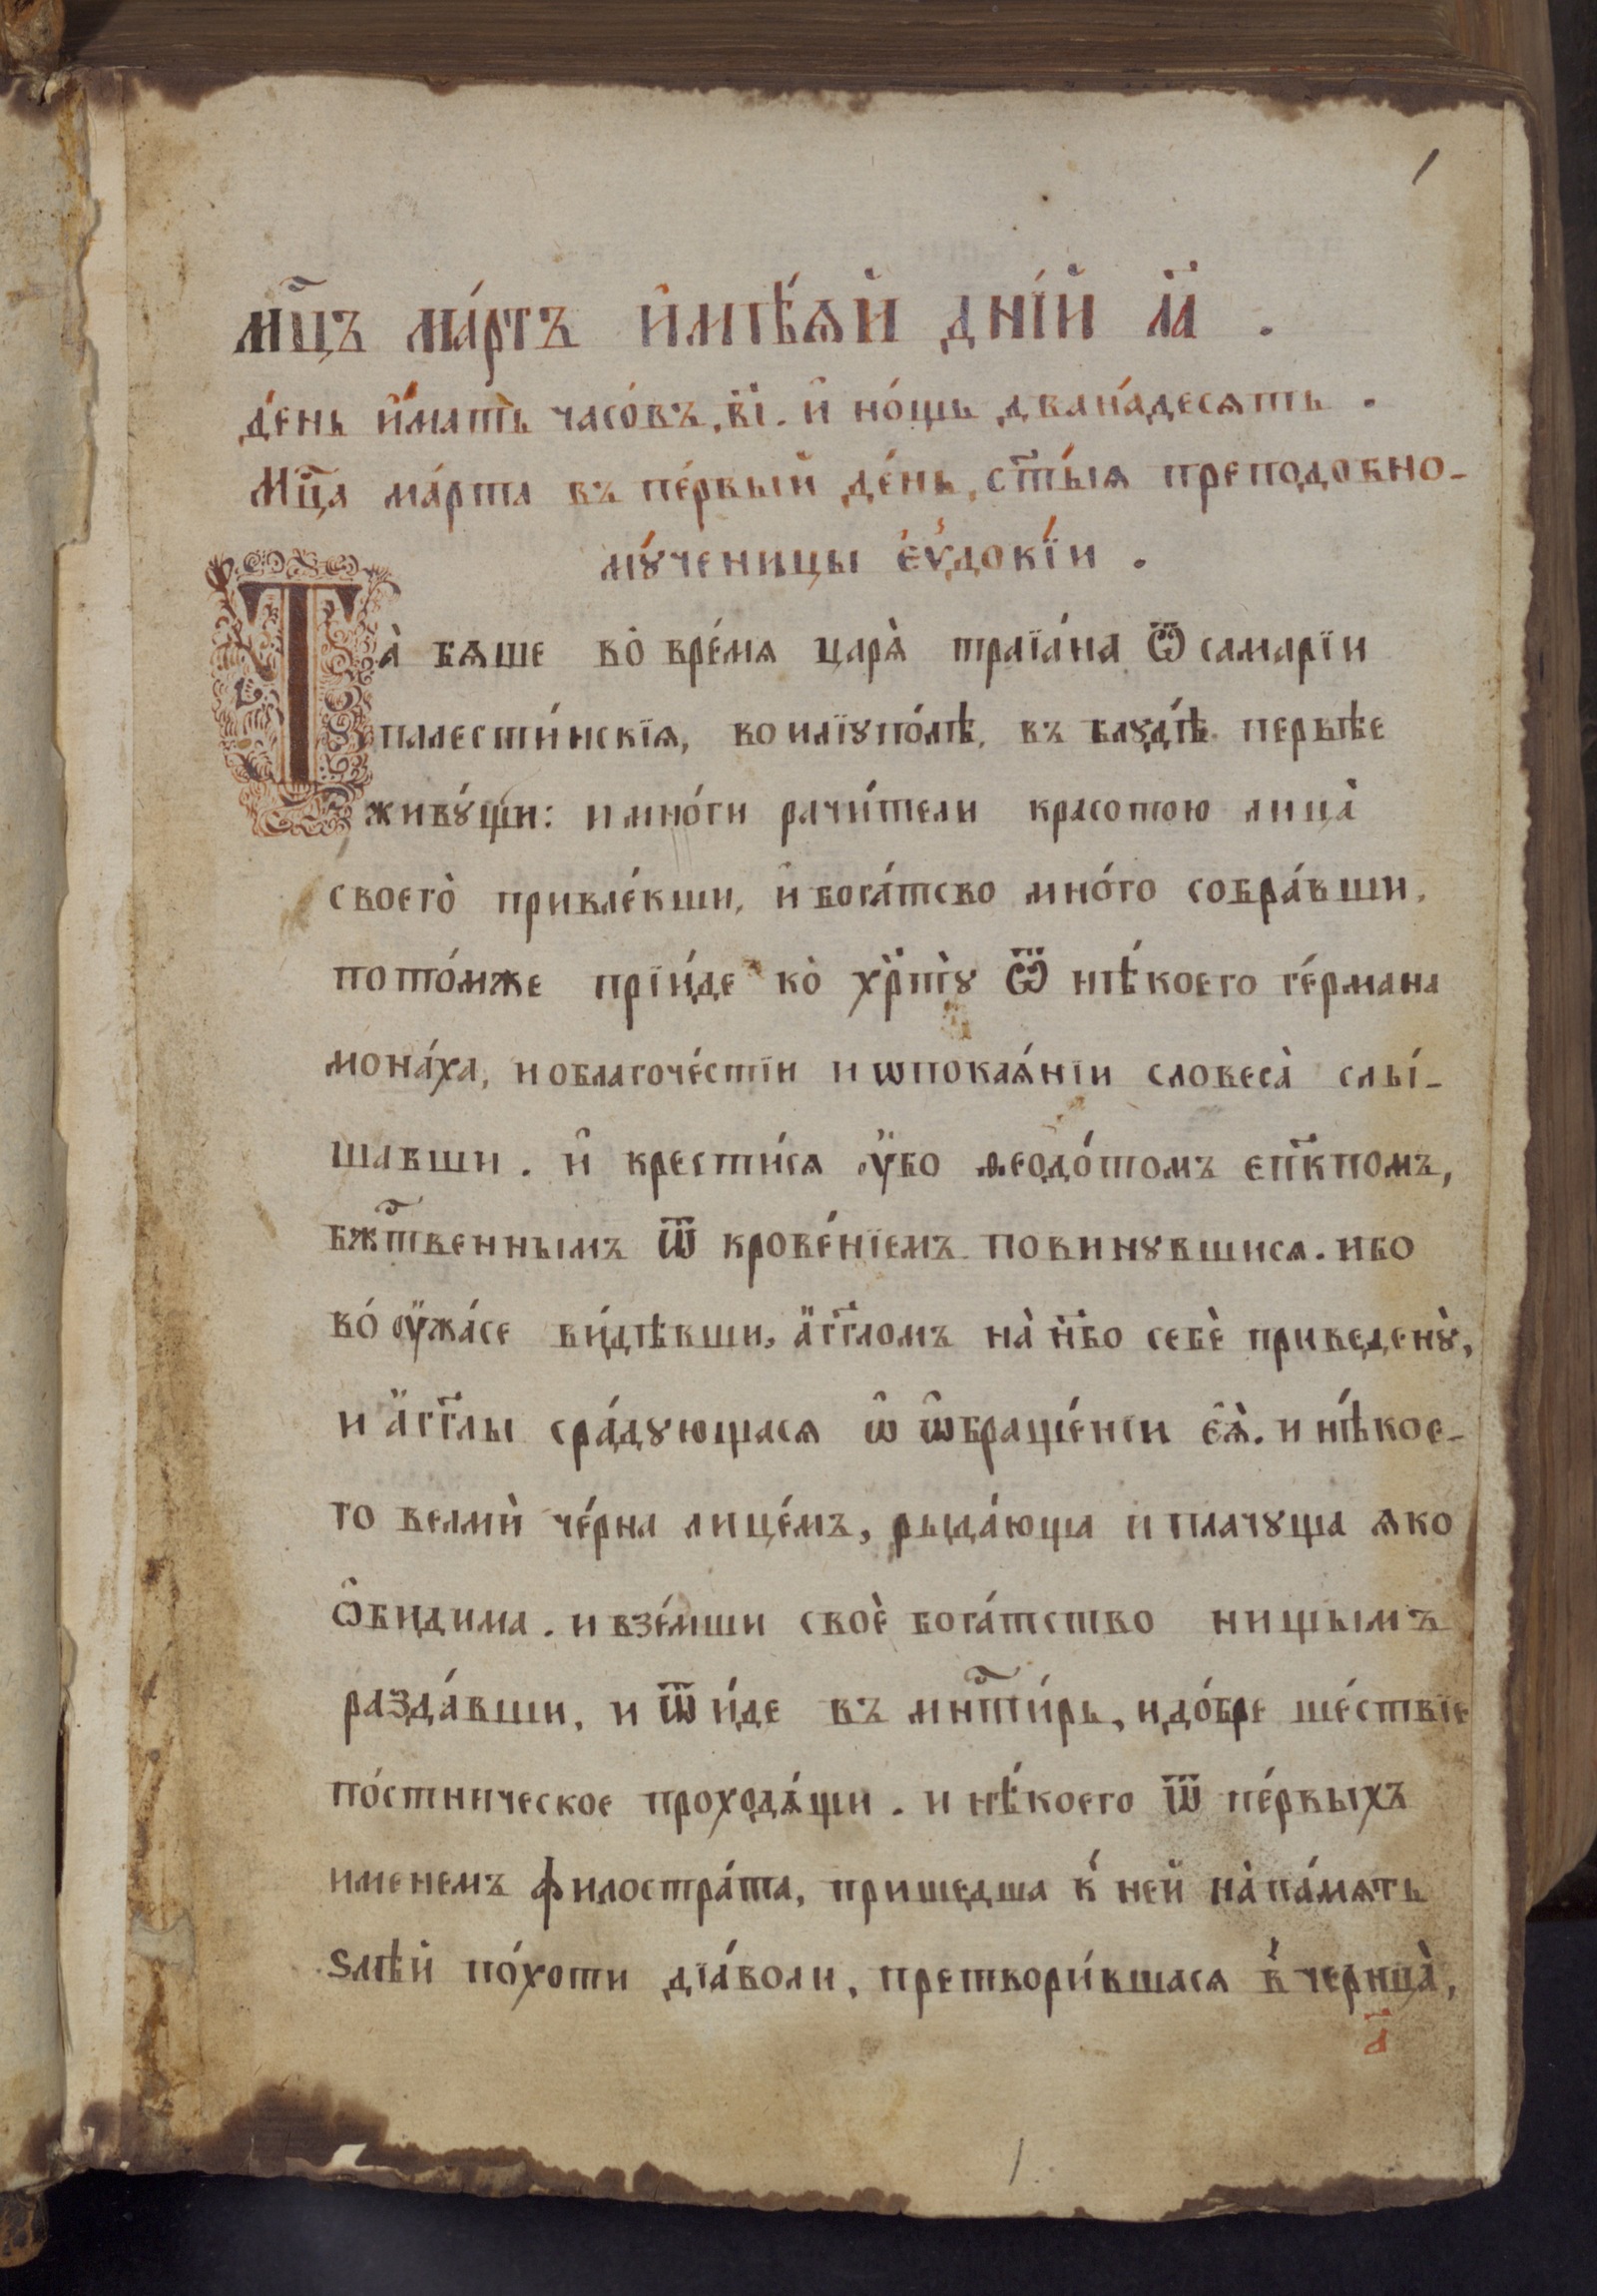 1
мц҃ъ ма́ртъ и҆мѣ́ѧй дні́й л҃а .
де́нь и҆́мать часо́въ, в҃і. и҆ но́щь двана́десѧть .
Мц҃а ма́рта въ пе́рвый де́нь, ст҃ы́ѧ преподобно-
мꙋ́ченицы є҆ѵдокі́и .
Та̀ бѧше во̀ вре́мѧ царѧ̀ траїа́на ѿ самарїи
палести́нскїѧ, во илїꙋпо́лѣ, въ блꙋ́дѣ первѣе
живꙋ́щи: и мно́ги рачи́тели красотою лица̀
своего̀ привле́кши, и҆ бога́тсво мно́го собра́вши,
пото́мже прїи́де ко̀ хр҃тꙋ̀ ѿ нѣ́коего ге́рмана
мона́ха, и облагоче́стїи и ѡпокаѧ́нїи словеса̀ слы́-
шавши . и҆ крести́сѧ ᲂу҆бо ѳеодо́томъ еп҃кпомъ,
бжт҃венным ъ ѿ крове́нїемъ повинꙋвшисѧ. ибо
во́ ᲂу҆жа́се ви́дѣвши, а҆́гг҃ломъ на̀ н҃бо себѐ приведенꙋ̀,
и а҆́гг҃лы сра́дꙋющасѧ ѡ҆ ѡ҆браще́нїи є҆ѧ̀. и нѣ́кое-
го велмѝ че́рна лице́мъ, рыда́юща и плачꙋща ѧко
ѻ҆бидима . и взе́мши своѐ бога́тство нищымъ
разда́вши, и ѿ и́де въ мнт҃и́рь, и до́бре ше́ствїе
по́стническое проходѧ́щи . и нѣ́коего ѿ пе́рвыхъ
именемъ филостра́та, пришедша к̾ ней на̀ па́мѧть
ѕлѣ́й по́хоти дїа́воли, претвори́вшасѧ в̾ черица̀,
а҃
1